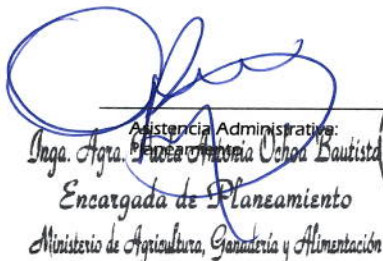 Asistencia Administrativa:
Planeamiento
Inga. Agra. Paola Antonia Ochoa Bautista
Encargada de Planeamiento
Ministerio de Agricultura, Ganadería y Alimentación